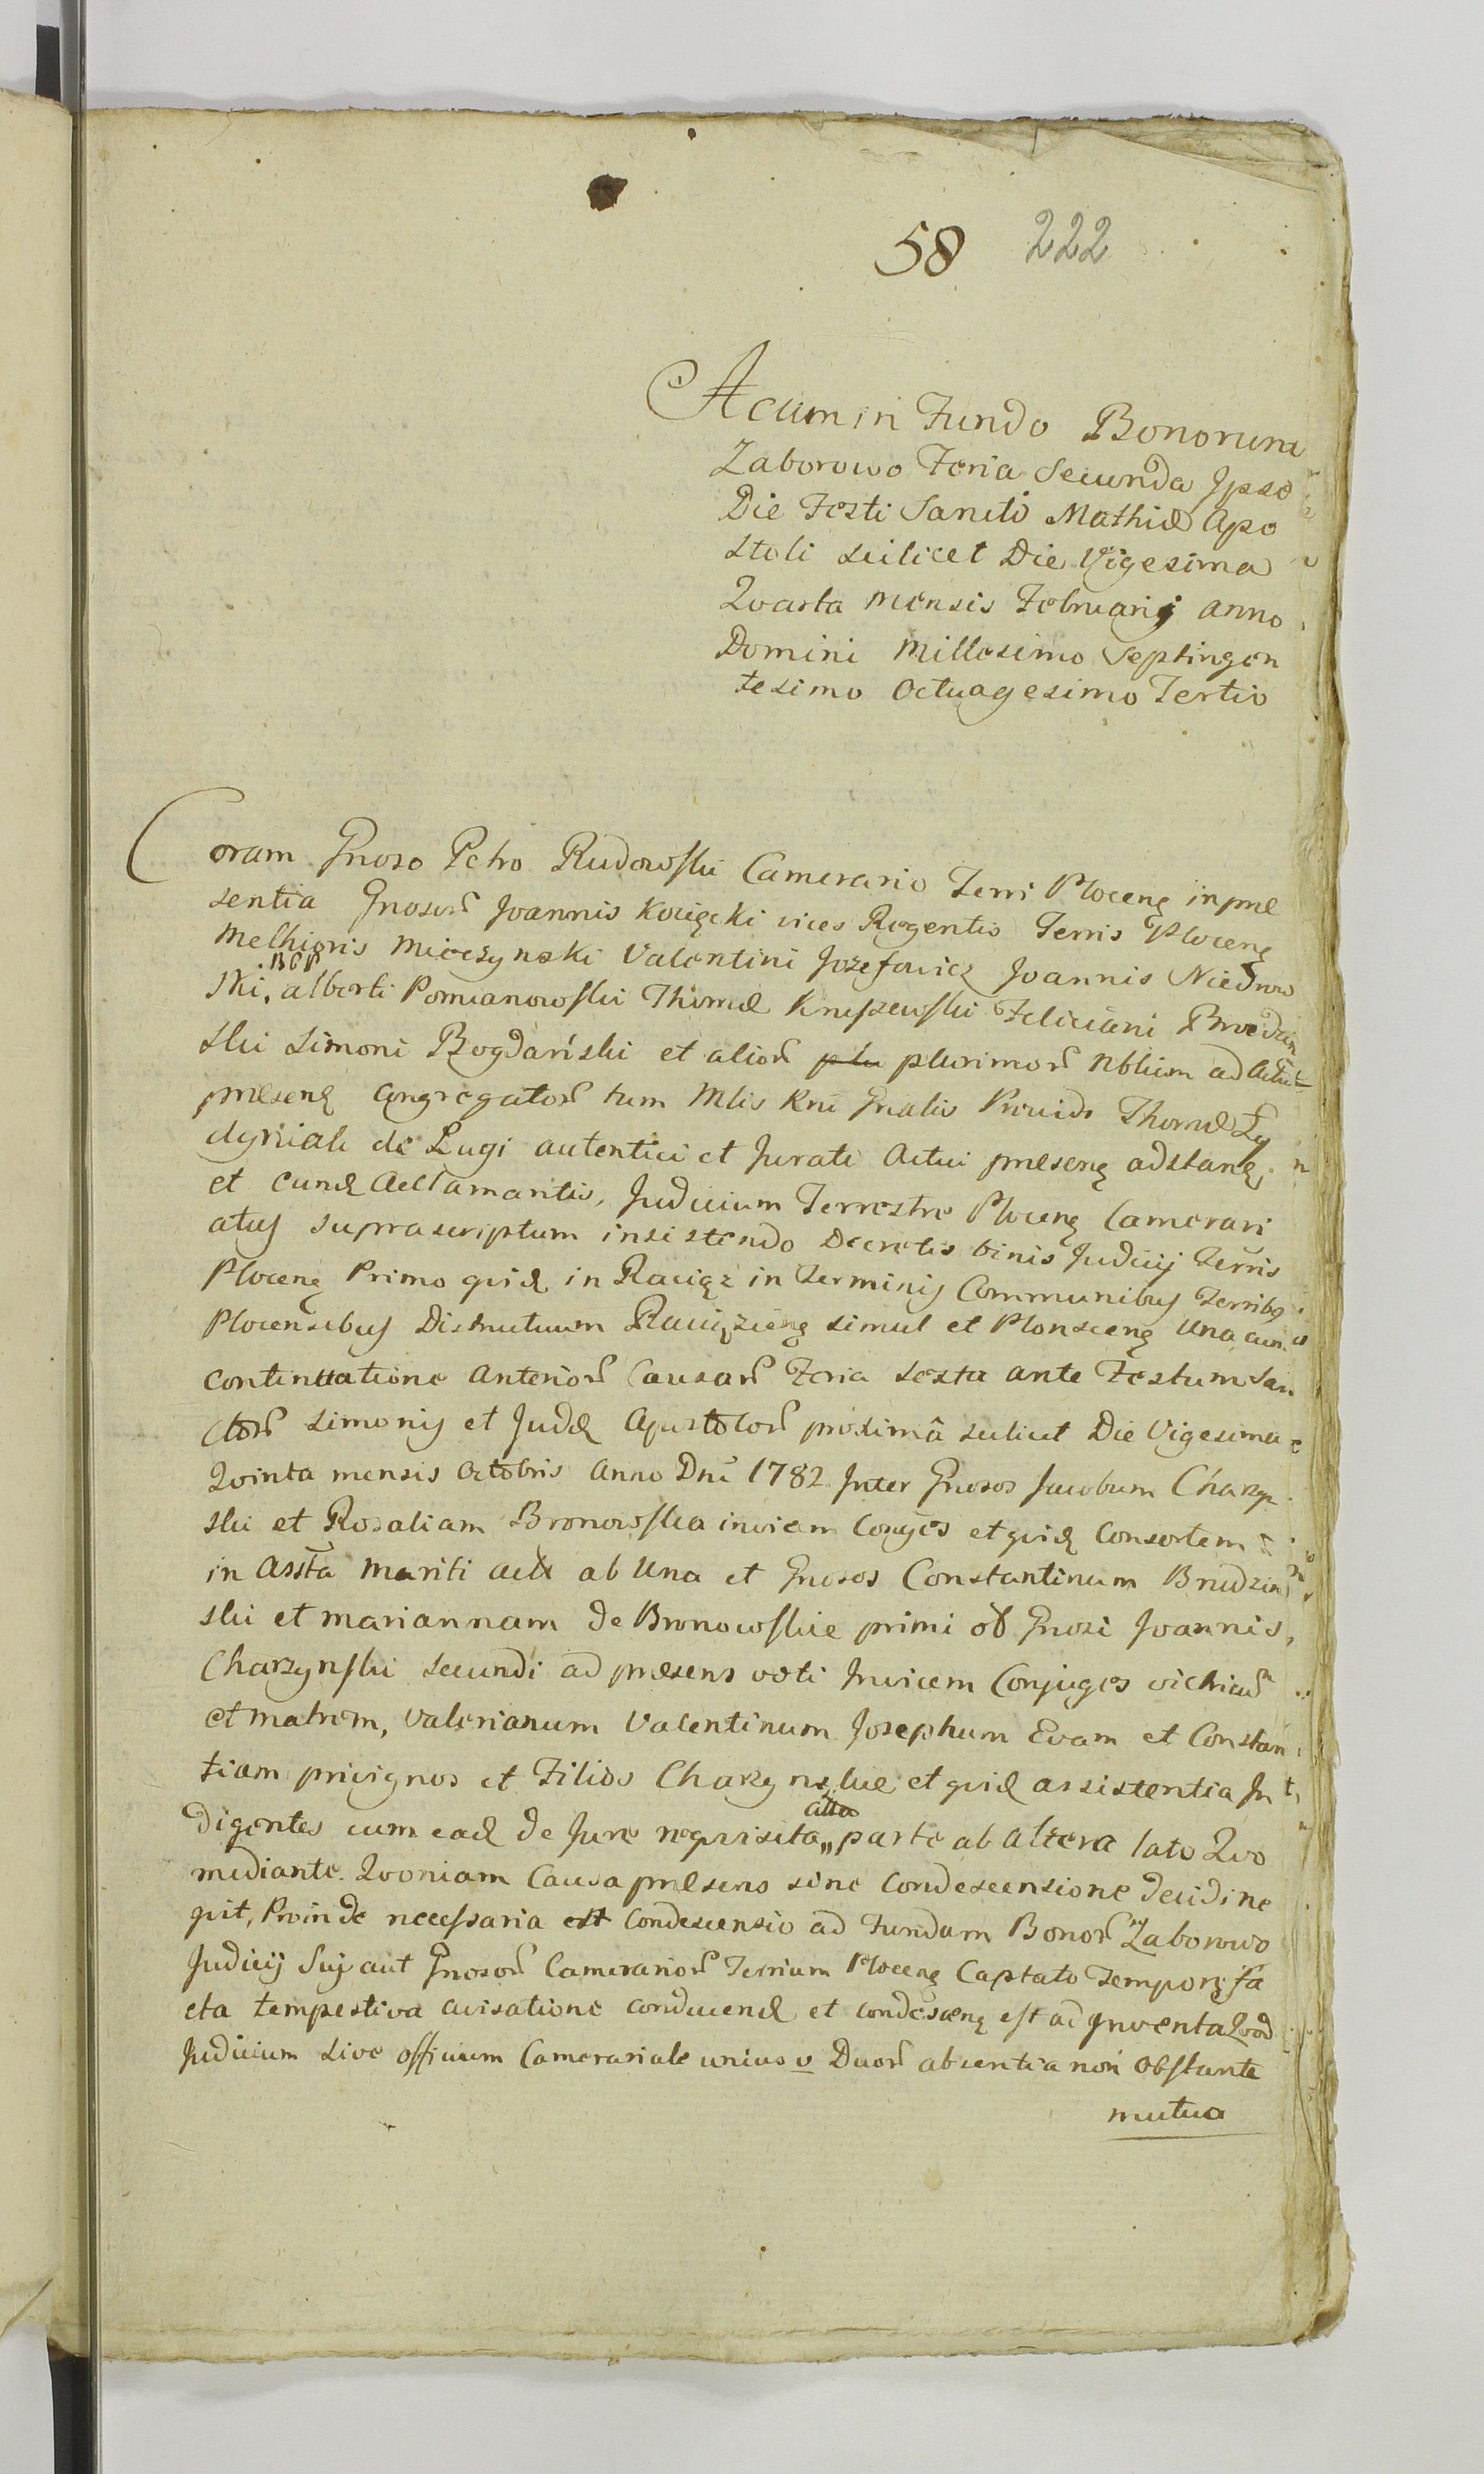 58 222
Actum in Fundo Bonorum
Zaborowo Feria Secunda Ipso
Die Festi Sancti Mathiæ Apo
stoli scilicet Die Vigesima
Qvarta mensis Februarij anno
Domini Millesimo Septingen
tesimo Octuagesimo Tertio
Coram Gnoso Petro Rudowski Camerario Terri Plocenę in præ
sentia Gnosor Joannis Kocięcki vices Regentis Terris Plocenę
Melhioris Miećzynski Valentini Jozefowicz Joannis
ski, alberti Pomianowski Thomæ Kruszewski Feliciani
ski Simoni Bogdański et alior plu plurimor Nblium ad
præsenę Congregator tum Mlis Rni Gnalis Providi Thomæ
de Lugi autentici et Jurati Actui præsenę adstanę,
et Cunę Acclamantis, Judicium Terrestre Plocenę Camerari
atus supra scriptum insistendo Decretis binis Judicij Terris
Plocenę Primo qvidę in Raciąz in Terminis Communibus Terribs
Plocensibus Districtuum Raciązienę simul et Plonscenę Una cum
continuatione Anterior Causar Feria Sexta ante Festum San
ctor Simonis et Judæ Apostolor proximâ scilicet Die Vigesima
Qvinta mensis Octobris Anno Dni 1782 Inter Gnosos Jacobum Charzyn
ski et Rosaliam Bronowska invicem Conjges et qvidę Consortem
in Assta Mariti actę ab Una et Gnosos Constantinum Brudzin
ski et Mariannam de Bronowskie primi ol Gnosi Joannis,
Charzynski secundi ad præsens voti Invicem Conjuges vitricum
et matrem, Valerianum Valentinum Josephum Evam et Constan
tiam privignos et Filios Charzynskie et qvidę assistentia In
digentes cum eadę de Jure reqvisita„ parte ab altera lato Qvo
mediante. Qvoniam Causa præsens sine Condescensione decidi ne
qvit, Proinde necessaria est Condescensio ad Fundum Bonor Zaborowo
Judicij Sui aut Gnosor Camerarior Terrium Plocenę Captato Tempore fa
cta tempestiva avisatione conducend et condescenę est ad Inventa Qvod
Judicium Sive officium Camerariale unius v Duor absentia non obstante
mutua